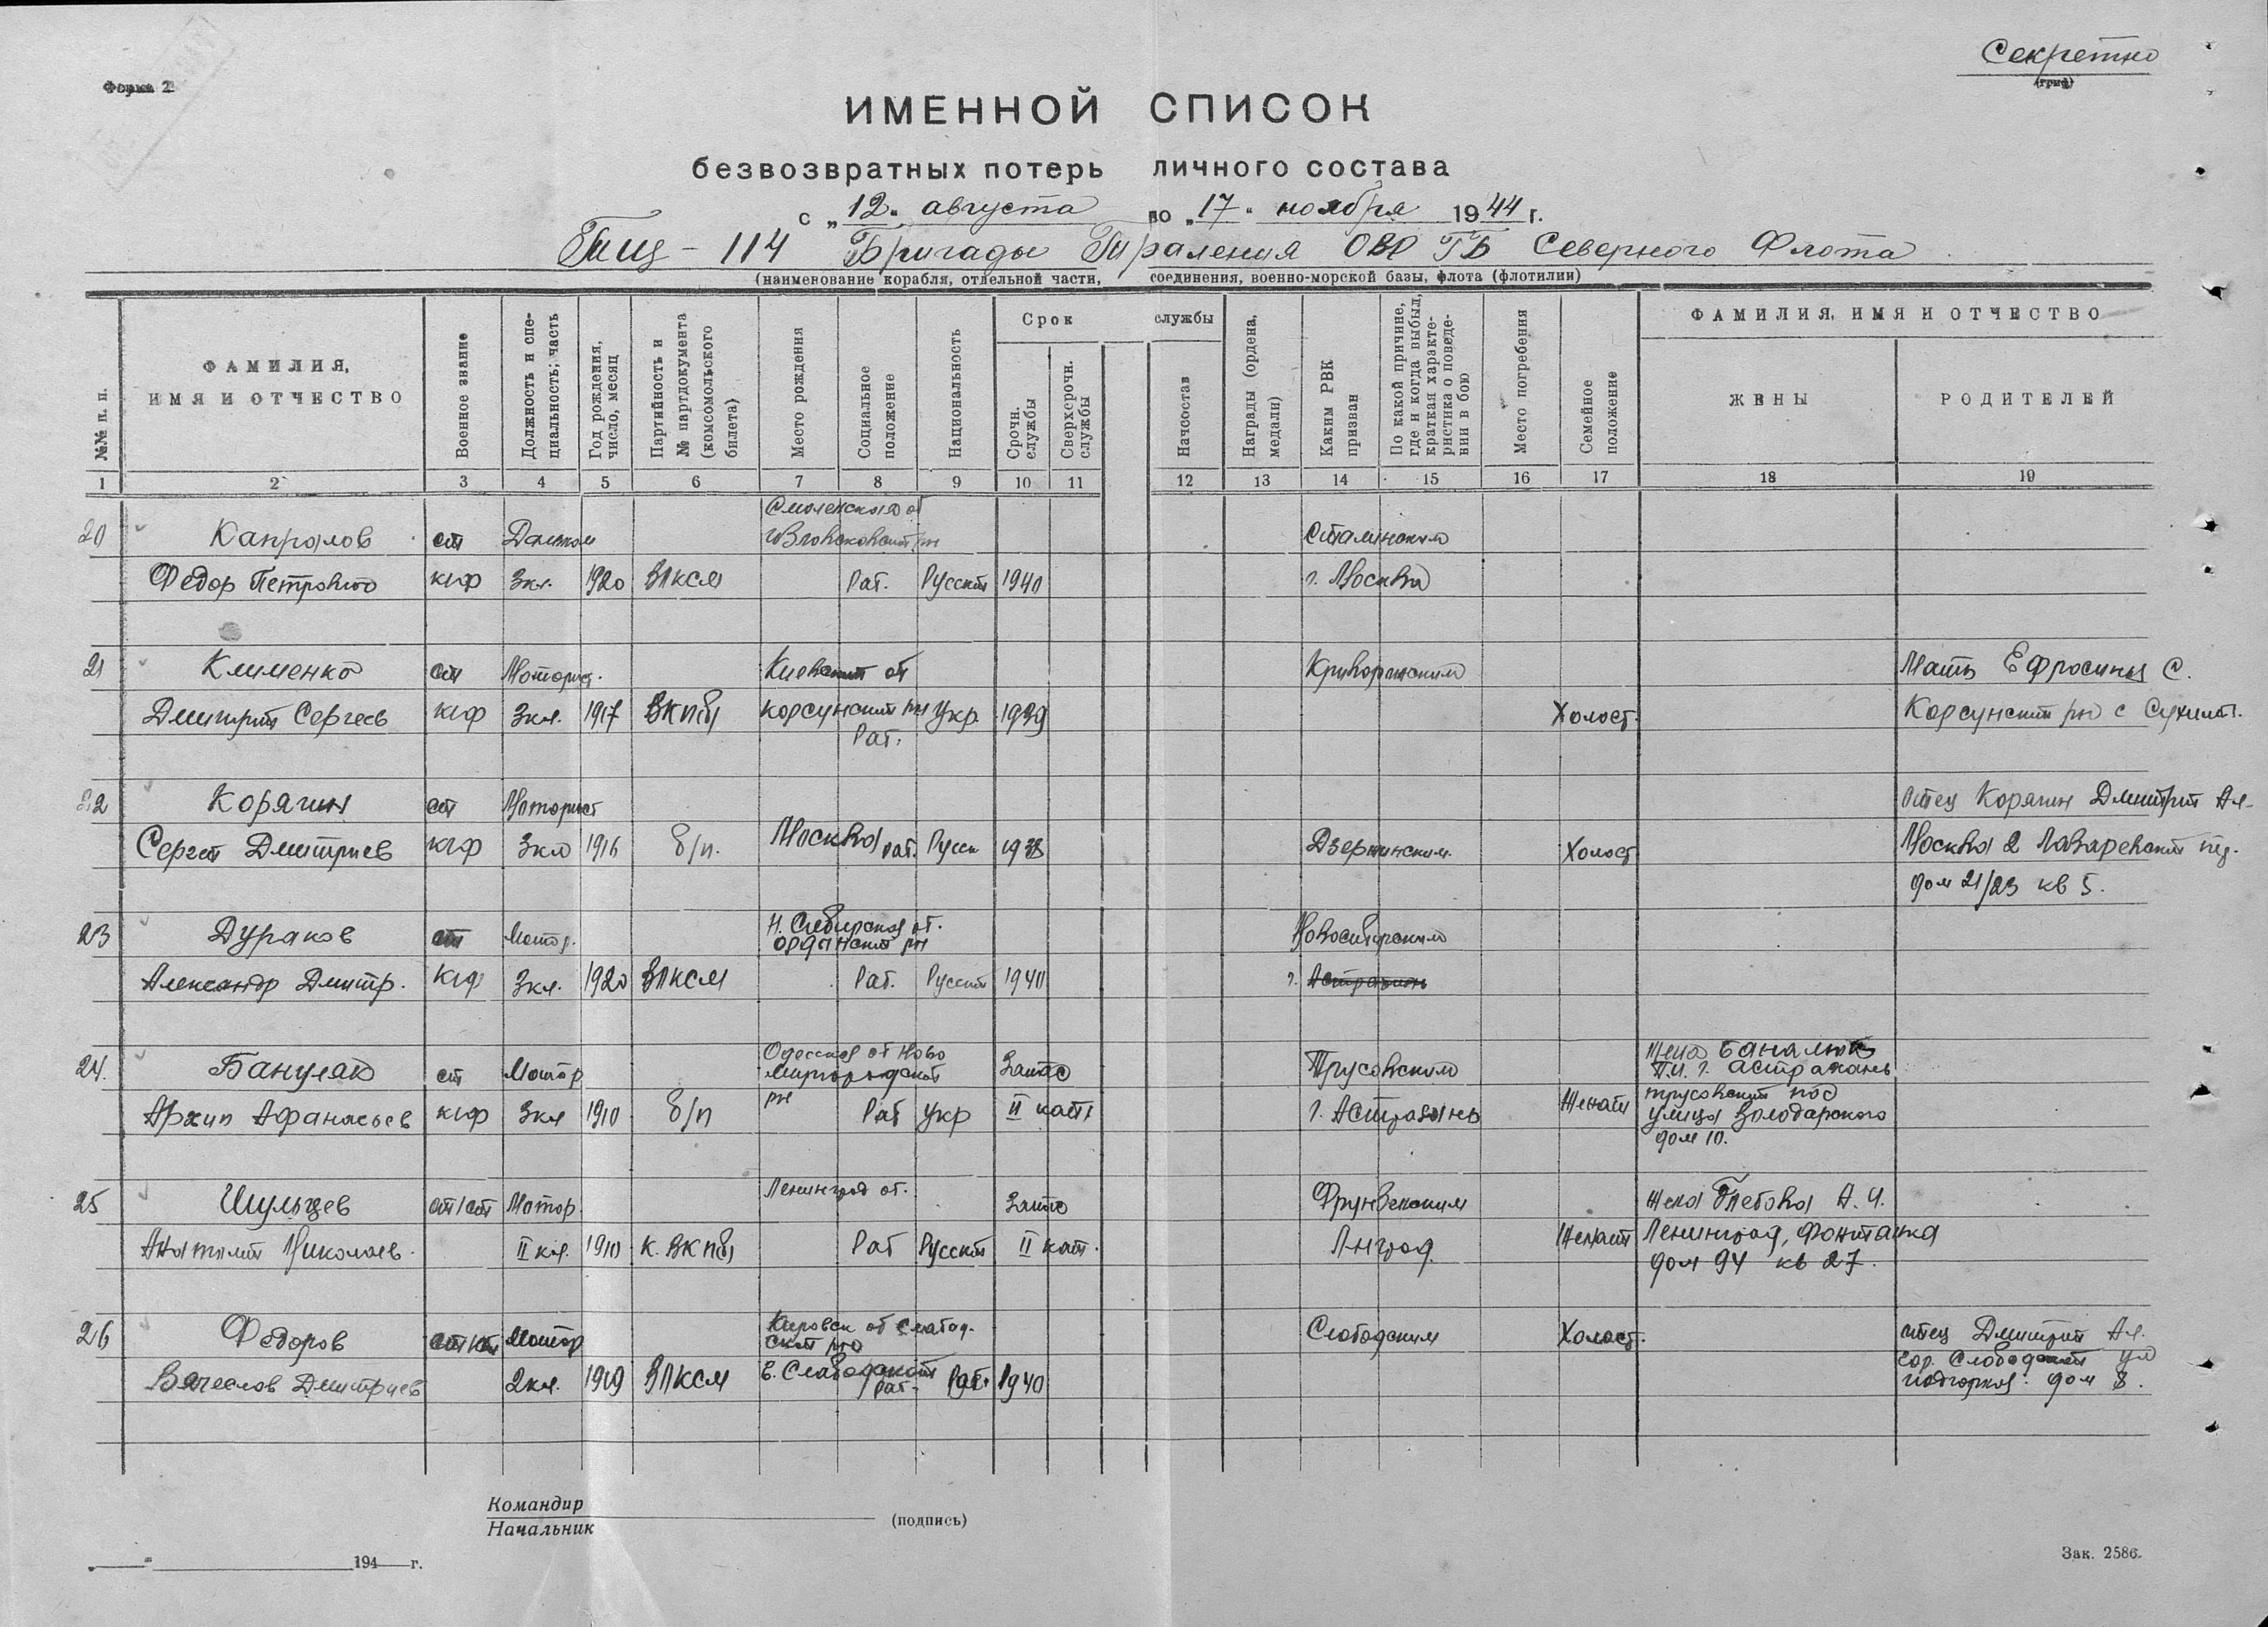 Секретно
(гриф)
Форма 2
ИМЕННОЙ СПИСОК
безвозвратных потерь личного состава
с „12“ августа по „17“ ноября 1944 г.
Тщ-114 Бригады Траления ОВР ГБ Северного Флота
(наименование корабля, отдельной части, соединения, военно-морской базы, флота (флотилии)
№№ п. п.
ФАМИЛИЯ,
ИМЯ И ОТЧЕСТВО
Военное звание
Должность и спе-
циальность; часть
Год рождения,
число, месяц
Партийность и
№ партдокумента
(комсомольского
билета)
Место рождения
Социальное
положение
Национальность
Срок службы
Срочн.
службы
Сверхсрочн.
службы
Начсостав
Награды (ордена,
медали)
Каким РВК
призван
По какой причине,
где и когда выбыл,
краткая характе-
ристика о поведе-
нии в бою
Место погребения
Семейное
положение
ФАМИЛИЯ, ИМЯ И ОТЧЕСТВО
ЖЕНЫ
РОДИТЕЛЕЙ
1 2 3 4 5 6 7 8 9 10 11 12 13 14 15 16 17 18 19
Смоленская об
20 Капралов ст Сталинским
Федор Петрович кгф 3кл. 1920 ВЛКСМ Раб. Русский 1940 г. Москва
21 Клименко ст Моторист. Киевский об Криворожским Мать Ефросинья С.
Дмитрий Сергеев кгф 3кл. 1917 ВКПб Корсунский рн Укр. 1939 Холост. Корсунский рн с
Раб.
22 Корягин ст Моторист отец Корягин Дмитрий Ал.
Сергей Дмитриев кгф 3кл 1916 б/п. Москва раб. Русск 1938 Дзержинским. Холост Москва 2 Лазаревский пер.
дом 21/23 кв 5.
Н. Сибирская об.
23 Дураков ст Мотор. Орданский рн Новосибирским
Александр Дмитр. кгф 3кл. 1920 ВЛКСМ Раб. Русский 1940 г.
Одесская об Ново жена
24. Бануляк ст Мотор миргородский Запас Трусовским П.И. г. Астрахань
рн трусовский
Архип Афанасьев кгф 3кл 1910 б/п Раб Укр II кат. г. Астрахань Женат улица Володарского
дом 10.
Ленинград об.
25 Шульцев ст/ст Мотор. Запас Фрунзенским жена Глебова А.И.
Анатолий Николаев. II кл. 1910 к. ВКПб Раб Русский II кат. Л-нград. Женат Ленинград, Фонтанка
дом 94 кв 27.
Кировск об Слобод-
26 Федоров ст/ст Мотор ской рн Слободским Холост. отец Дмитрий Ал.
гор. Слободской ул
Вячеслов Дмитриев 2кл. 1919 ВЛКСМ г. Слободской Раб. Раб. 1940 дом 8.
Командир
Начальник
(подпись)
„ “ 194 г.
Зак. 2586.